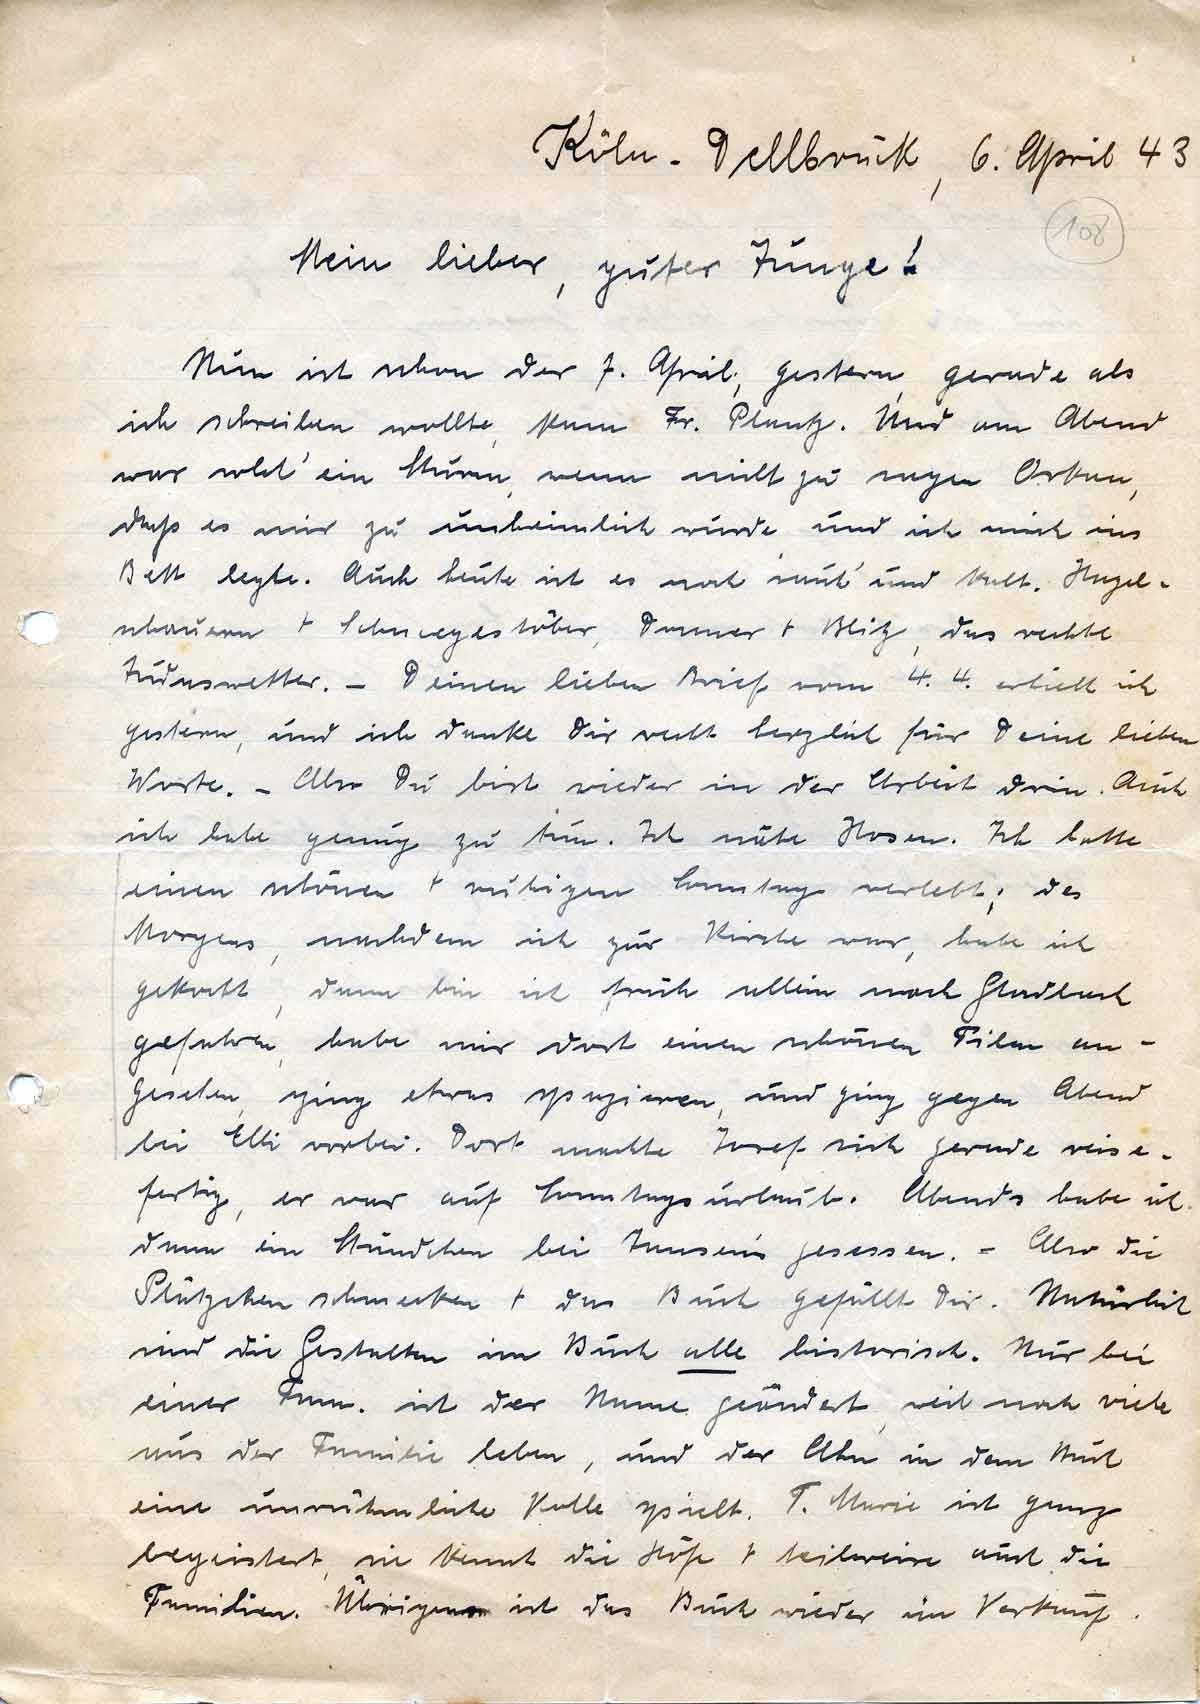 Köln-Dellbrück, 6. April 43
108
Mein lieber, guter Junge!
Nun ist schon der 7. April, gestern, gerade als
ich schreiben wollte, kam Fr. Plantz. Und am Abend
war solch' ein Sturm, wenn nicht zu sagen Orkan,
daß es mir zu unheimlich wurde und ich mich ins
Bett legte. Auch heute ist es noch rauh und kalt. Hagel-
schauern + Schneegestöber, Donner + Blitz, das rechte
Judaswetter. – Deinen lieben Brief vom 4. 4. erhielt ich
gestern, und ich danke Dir recht herzlich für Deine lieben
Worte. – Also Du bist wieder in der Arbeit drin. Auch
ich habe genug zu tun. Ich nähe Hosen. Ich hatte
einen schönen + ruhigen Sonntag verlebt; des
Morgens, nachdem ich zur Kirche war, habe ich
gekocht, dann bin ich früh allein nach Gladbach
gefahren, habe mir dort einen schönen Film an-
gesehen, ging etwas spazieren, und ging gegen Abend
bei Elli vorbei. Dort machte Josef sich gerade reise-
fertig, er war auf Sonntagsurlaub. Abends habe ich
dann ein Stündchen bei Jansens gesessen. – Also die
Plätzchen schmecken + das Buch gefällt Dir. Natürlich
sind die Gestalten im Buch alle historisch. Nur bei
einer Fam. ist der Name geändert, weil noch viele
aus der Familie leben, und der Ahn in dem Buch
eine unrühmliche Rolle spielt. T. Marie ist ganz
begeistert, sie kennt die Höfe + teilweise auch die
Familien. Übrigens ist das Buch wieder im Verkauf.